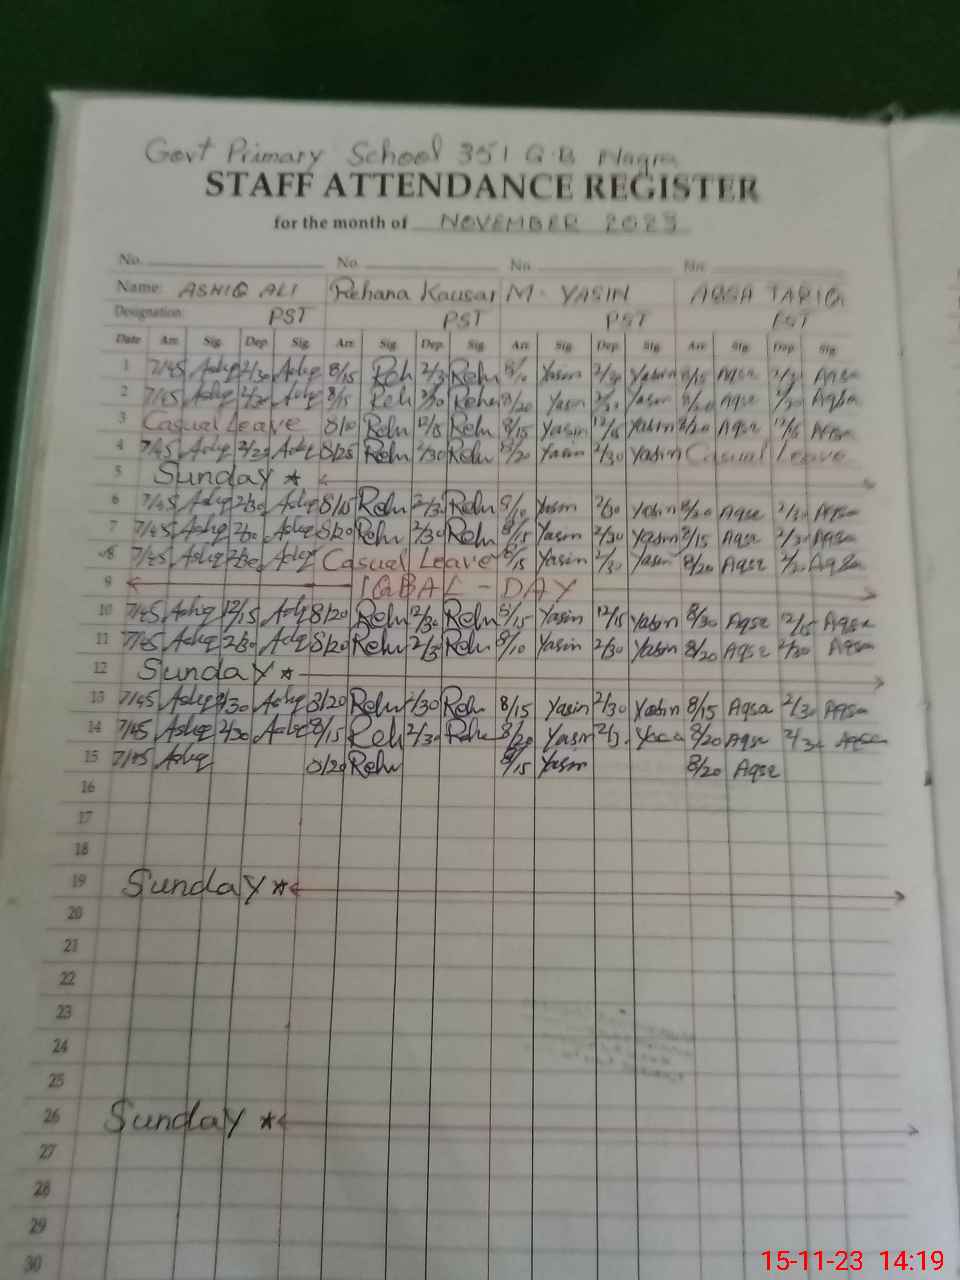 Govt Primary School 351 G.B Nagra
STAFF ATTENDANCE REGISTER
for the month of NOVEMBER 2023
No. No. No. No.
Name: ASHIQ ALI Rehana Kausar M. YASIN AQSA TARIQ
Designation: PST PST PST PST
Date Arr. Sig. Dep. Sig. Arr. Sig. Dep. Sig. Arr. Sig. Dep. Sig. Arr. Sig. Dep. Sig.
1 7/45 Ashq 2/30 Ashq 8/15 Reh 2/30 Rehn 8/10 Yasin 2/30 Yasin 8/15 Aqsa 2/30 Aqsa
2 7/45 Ashq 2/30 Ashq 8/15 Reh 2/30 Rehn 8/20 Yasin 2/30 Yasin 8/20 Aqsa 2/30 Aqsa
3 Casual Leave 8/10 Rehn 12/15 Rehn 8/15 Yasin 12/15 Yasin 8/20 Aqsa 12/15 Aqsa
4 7/45 Ashq Ashq 8/25 Rehn 2/30 Rehn 8/20 Yasin 2/30 Yasin Casual Leave
5 Sunday ★
6 7/45 Ashq 2/30 Ashq 8/15 Rehn 2/30 Rehn 8/10 Yasin 2/30 Yasin 8/20 Aqsa 2/30 Aqsa
7 7/45 Ashq 2/30 Ashq 8/20 Rehn 2/30 Rehn 8/15 Yasin 2/30 Yasin 8/15 Aqsa 2/30 Aqsa
8 7/45 Ashq 2/30 Ashq Casual Leave 8/15 Yasin 2/30 Yasin 8/20 Aqsa Aqsa
9 IQBAL - DAY
10 7/45 Ashq 12/15 Ashq 8/20 Rehn 12/30 Rehn 8/15 Yasin 12/15 Yasin 8/30 Aqsa 12/15 Aqsa
11 7/45 Ashq 2/30 Ashq 8/20 Rehn 2/30 Rehn 8/10 Yasin 2/30 Yasin 8/20 Aqsa 2/30 Aqsa
12 Sunday ★
13 7/45 Ashq 2/30 Ashq 8/20 Rehn 2/30 Rehn 8/15 Yasin 2/30 Yasin 8/15 Aqsa 2/30 Aqsa
14 7/45 Ashq 2/30 Ashq 8/15 Reh 2/30 Rehn 8/20 Yasin 8/20 Aqsa 2/30 Aqsa
15 7/45 Ashq 8/20 Rehn 8/15 Yasin 8/20 Aqsa
16
17
18
19 Sunday ★
20
21
22
23
24
25
26 Sunday ★
27
28
29
30
15-11-23 14:19